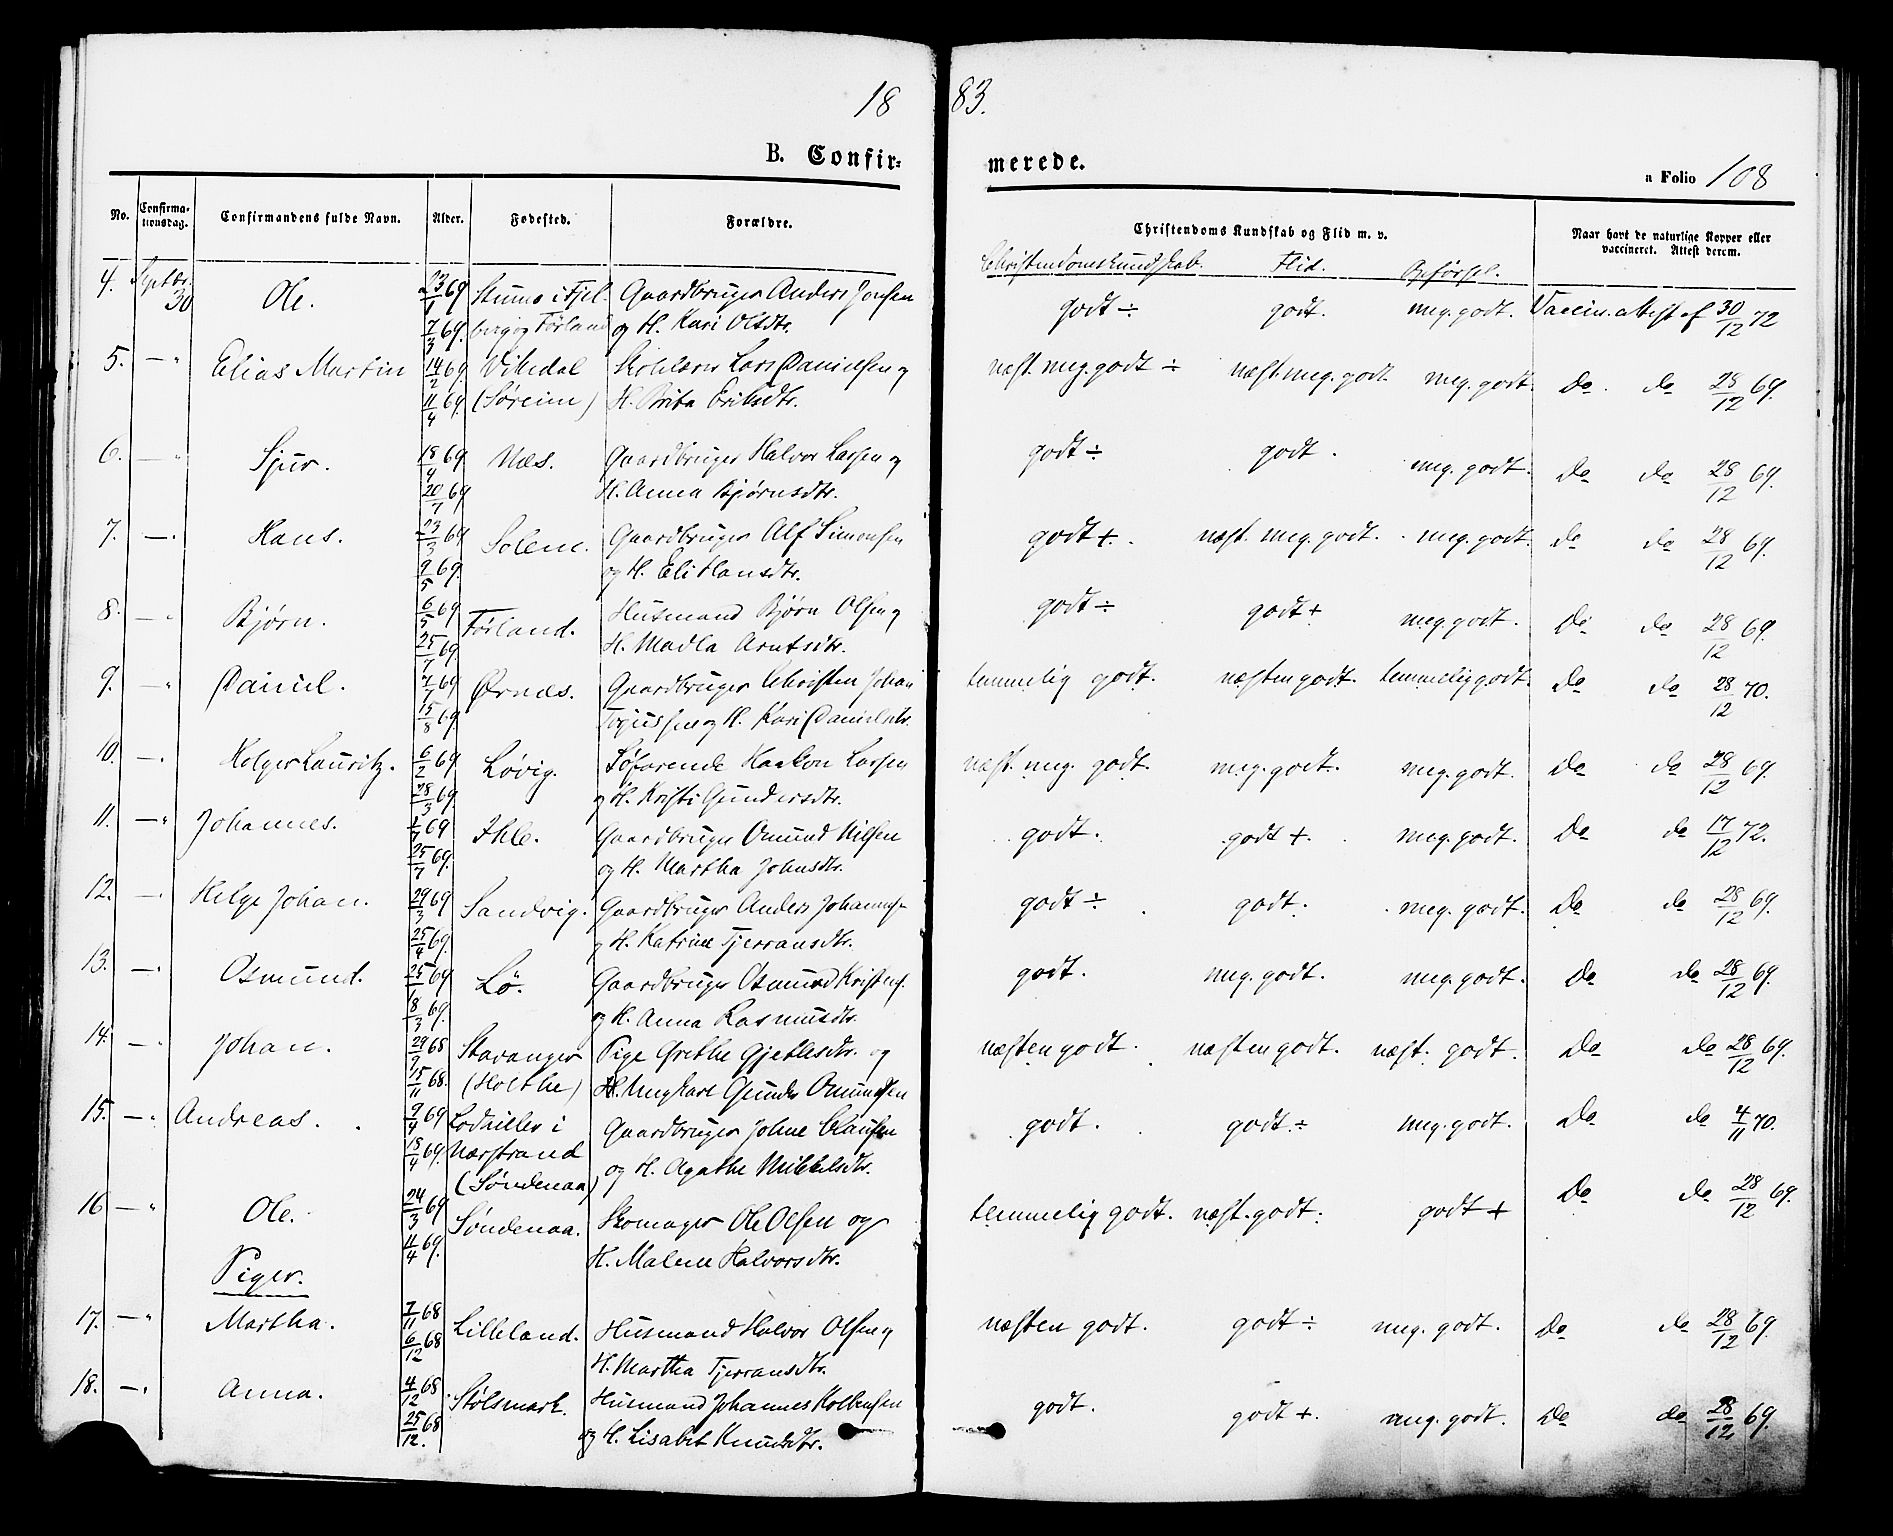 18 83.
B. Confir= merede.
a Folio 108
No. Confirma-tionsdag. Confirmandens fulde Navn. Alder. Fødested. Forældre. Christendoms Kundskab og Flid m. v. Naar havt de naturlige Kopper eller vaccineret. Attest derom.
Christendomskundskab. Flid. Opførsel.
4. Septbr. 30 Ole. 23/1 69 Stumo i Fjel- Gaardbruger Anders Jonsen godt ÷ godt. meg. godt. Vaccin. attest af 30/12 72
7/3 69. berg og Førland og H. Kari Olsdtr.
5. — " Elias Martin 14/2 69. Vikedal Skolelærer Lars Danielsen og næst. meg. godt ÷ næst. meg. godt meg. godt. Do. do 28/12 69.
11/4 69. (Søreim) H. Brita Eriksdtr.
6. — " Sjur. 18/4 69 Næs. Gaardbruger Halvor Larsen og godt ÷ godt. meg. godt. Do do 28/12 69.
20/7 69 H. Anna Bjørnsdtr.
7. — " Hans. 23/3 69 Solem. Gaardbruger Alf Simonsen godt +. næst. meg. godt. meg. godt. do do 28/12 69.
9/5 69. og H. Eli Hansdtr.
8. — " Bjørn. 6/5 69 Førland. Husmand Bjørn Olsen og godt ÷ godt + meg. godt. Do do 28/12 69.
25/7 69. H. Madla Arntsdtr.
9. — " Daniel. 7/7 69 Ørnæs. Gaardbruger Christen Johan temmelig godt. næsten godt. temmelig godt. Do do 28/12 70.
15/8 69. og H. Kari Danielsdtr.
10. — " Holger Lauritz. 6/2 69 Løvig. Søfarende Haakon Larsen næst. meg. godt. meg. godt. meg. godt. Do do 28/12 69.
28/3 69. og H. Kristi Gundersdtr.
11. — " Johannes. 2/7 69 Ihle. Gaardbruger Omund Nilsen godt. godt +. meg. godt. Do do 17/12 72.
25/7 69. og H. Martha Johnsdtr.
12. — " Helge Johan. 29/3 69 Sandvig. Gaardbruger Anders Johannes- godt ÷ godt. meg. godt. Do do 28/12 69.
25/4 69. og H. Katrine Tjerransdtr.
13. — " Osmund. 25/1 69 Lø. Gaardbruger Osmund Kristens. godt. meg. godt. meg. godt. Do do 28/12 69.
8/3 69. og H. Anna Rasmusdtr.
14. — " Johan. 29/9 68 Stavanger Pige Grethe Gjetlesdtr. og næsten godt. næsten godt. næst. godt. Do do 28/12 69.
15/11 68. (Holthe) Ungkarl Gunder Omundsen
15. — " Andreas. 9/4 69 i Gaardbruger Johne Clausen godt. godt. ÷ meg. godt. Do do 4/11 70.
18/4 69. Nærstrand og H. Agathe Mikkelsdtr.
(Søndenaa)
16 — " Ole. 24/3 69 Søndenaa. Skomager Ole Olsen og temmelig godt. næst. godt. godt + Do do 28/12 69.
11/4 69. H. Malene Halvorsdtr.
Piger.
17. — " Martha. 7/11 68 Lilleland. Husmand Halvor Olsen og næsten godt. godt ÷ meg. godt. Do do 28/12 69.
6/12 68 H. Martha Tjerransdtr.
18. — " Anna. 4/12 68. Stølsmark. Husmand Johannes Kolbensen godt. godt +. meg. godt. Do do 28/12 69.
25/12. 68 og H. Lisabet Knudsdtr.